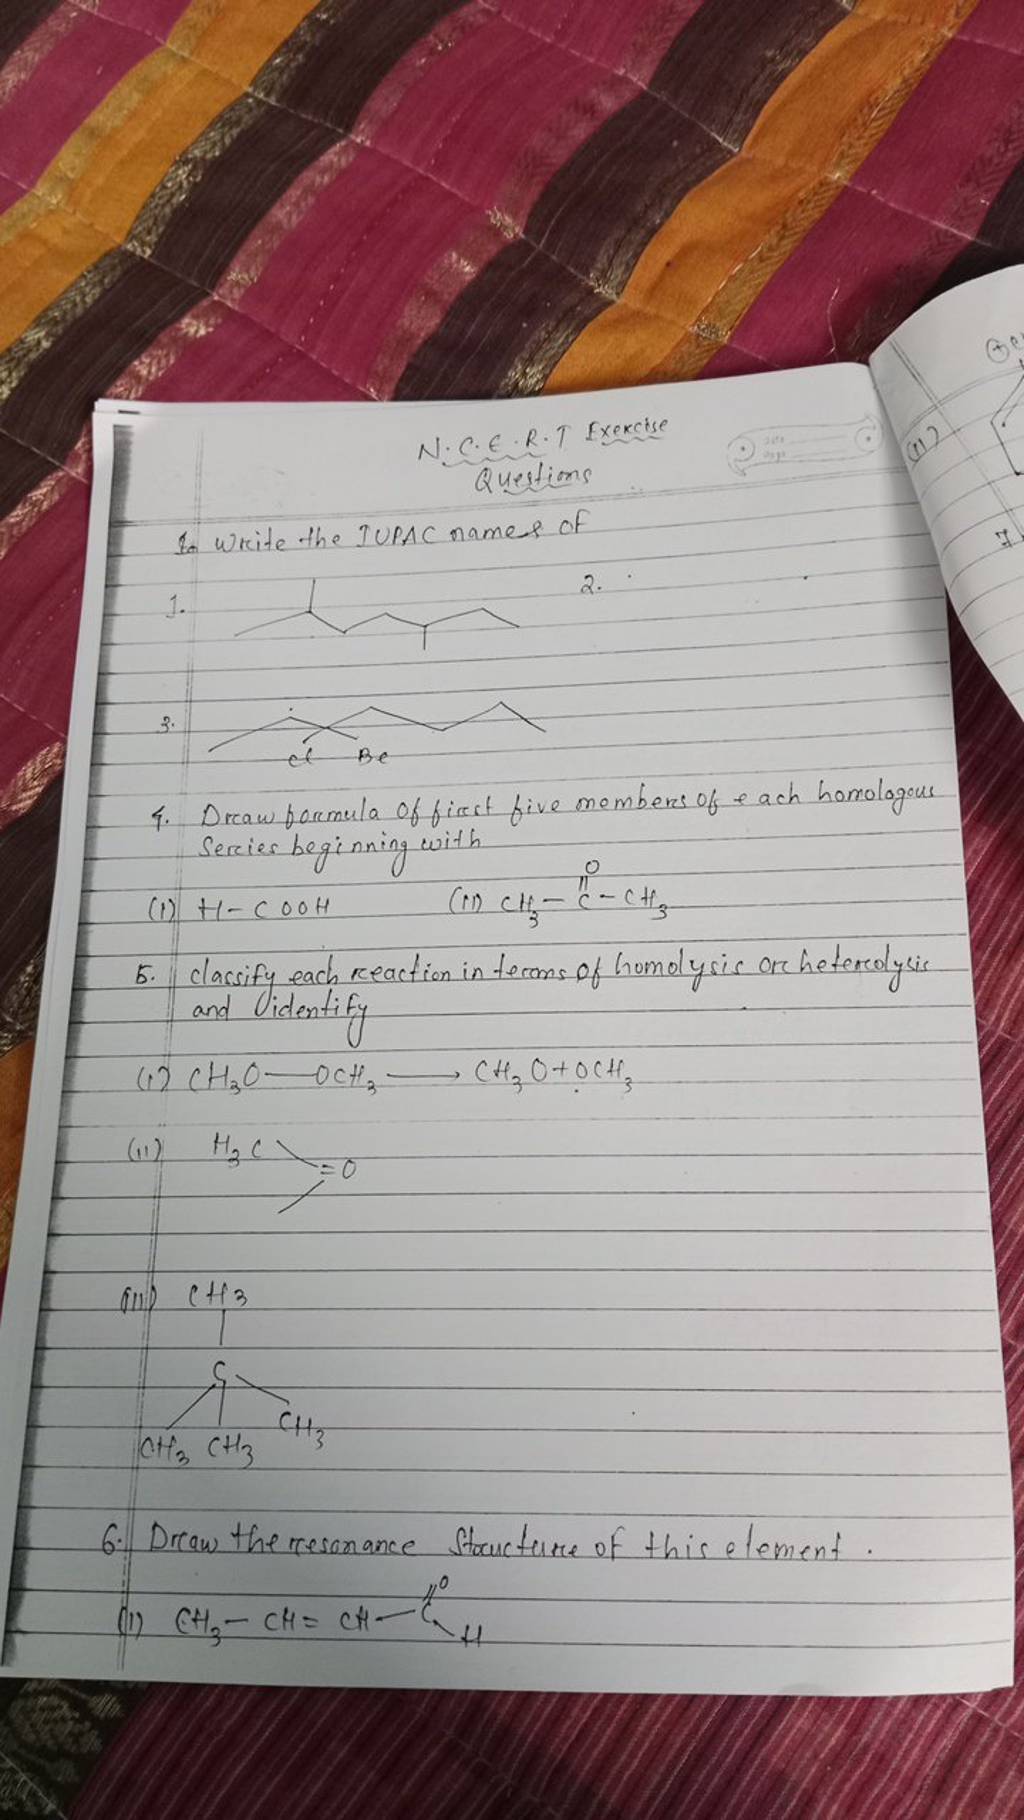 N.C.E.R.T Exercise
Questions
1. Write the IUPAC names of
1.
2.
3.
Cl Br
4. Draw formula of first five members of each homologous
Series beginning with
(i) H-COOH (ii) CH3-C-CH3
O
5. classify each reaction in terms of homolysis or heterolysis
and identify
(i) CH3O—OCH3 → CH3O+OCH3
(ii) H3C =O
(iii) CH3
C
CH3 CH3 CH3
6. Draw the resonance Structure of this element.
(i) CH3-CH=CH-C
O
H